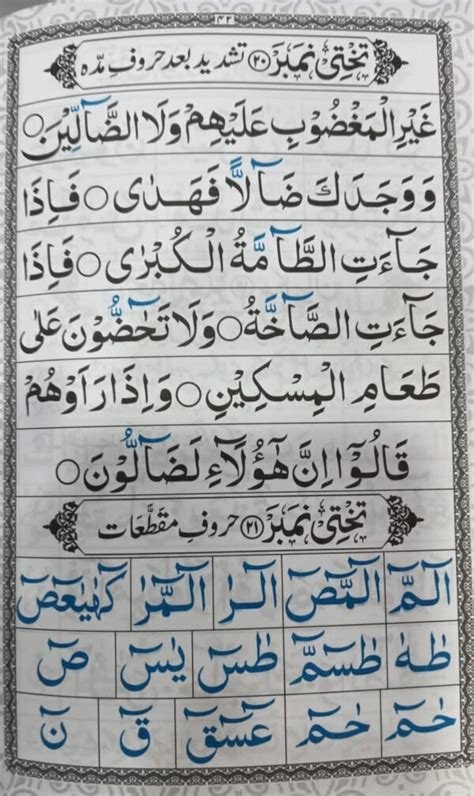 ۴۲
تختی نمبر ۲۰ تشدید بعد حروفِ مدّہ
غَيْرِ الْمَغْضُوْبِ عَلَيْهِمْ وَلَا الضَّآلِّيْنَ○
وَوَجَدَكَ ضَآلًّا فَهَدٰى○ فَاِذَا
جَآءَتِ الطَّآمَّةُ الْكُبْرٰى○ فَاِذَا
جَآءَتِ الصَّآخَّةُ○ وَلَا تَحٰٓضُّوْنَ عَلٰى
طَعَامِ الْمِسْكِيْنِ○ وَاِذَا رَاَوْهُمْ
قَالُوْٓا اِنَّ هٰٓؤُلَآءِ لَضَآلُّوْنَ○
تختی نمبر ۲۱ حروفِ مقطّعات
الٓمّٓ الٓمّٓصٓ الٓرٰ الٓمّٓرٰ كٓهٰيٰعٓصٓ
طٰهٰ طٰسٓمّٓ طٰسٓ يٰسٓ صٓ
حٰمٓ حٰمٓ عٓسٓقٓ قٓ نٓ